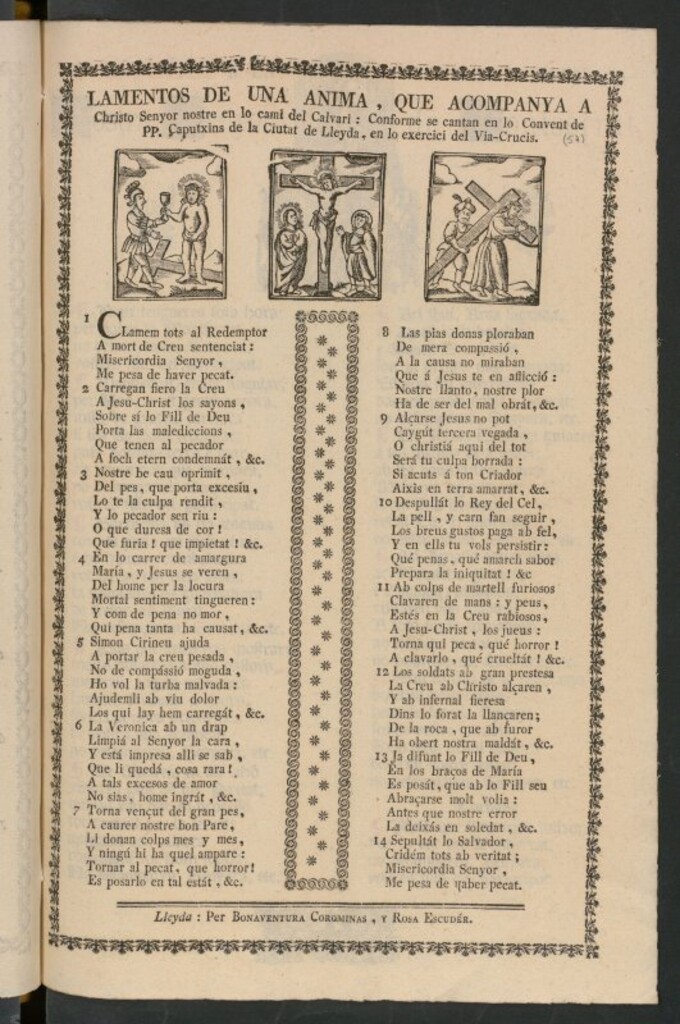 LAMENTOS DE UNA ANIMA, QUE ACOMPANYA A
Christo Senyor nostre en lo camí del Calvari: Conforme se cantan en lo Convent de
PP. Caputxins de la Ciutat de Lleyda, en lo exercici del Via-Crucis.
(57)
1 Clamem tots al Redemptor
A mort de Creu sentenciat:
Misericordia Senyor,
Me pesa de haver pecat.
2 Carregan fiero la Creu
A Jesu-Christ los sayons,
Sobre sí lo Fill de Deu
Porta las malediccions,
Que tenen al pecador
A foch etern condemnát, &c.
3 Nostre be cau oprimit,
Del pes, que porta excesiu,
Lo te la culpa rendit,
Y lo pecador sen riu:
O que duresa de cor!
Que furia! que impietat! &c.
4 En lo carrer de amargura
María, y Jesus se veren,
Del home per la locura
Mortal sentiment tingueren:
Y com de pena no mor,
Qui pena tanta ha causat, &c.
5 Simon Cirineu ajuda
A portar la creu pesada,
No de compássió moguda,
Ho vol la turba malvada:
Ajudemli ab viu dolor
Los qui lay hem carregát, &c.
6 La Veronica ab un drap
Limpiá al Senyor la cara,
Y está impresa alli se sab,
Que li quedá, cosa rara!
A tals excesos de amor
No sias, home ingrát, &c.
7 Torna vençut del gran pes,
A caurer nostre bon Pare,
Li donan colps mes y mes,
Y ningú hi ha quel ampare:
Tornar al pecat, que horror!
Es posarlo en tal estát, &c.
8 Las pias donas ploraban
De mera compassió,
A la causa no miraban
Que á Jesus te en aflicció:
Nostre llanto, nostre plor
Ha de ser del mal obrát, &c.
9 Alçarse Jesus no pot
Caygút tercera vegada,
O christiá aqui del tot
Será tu culpa borrada:
Si acuts á ton Criador
Aixis en terra amarrat, &c.
10 Despullát lo Rey del Cel,
La pell, y carn fan seguir,
Los breus gustos paga ab fel,
Y en ells tu vols persistir:
Qué penas, qué amarch sabor
Prepara la iniquitat! &c
11 Ab colps de martell furiosos
Clavaren de mans: y peus,
Estés en la Creu rabiosos,
A Jesu-Christ, los jueus:
Torna qui peca, qué horror!
A clavarlo, qué crueltát! &c.
12 Los soldats ab gran prestesa
La Creu ab Christo alçaren,
Y ab infernal fieresa
Dins lo forat la llançaren;
De la roca, que ab furor
Ha obert nostra maldát, &c.
13 Ja difunt lo Fill de Deu,
En los braços de María
Es posát, que ab lo Fill seu
Abraçarse molt volia:
Antes que nostre error
La deixás en soledat, &c.
14 Sepultát lo Salvador,
Cridém tots ab veritat;
Misericordia Senyor,
Me pesa de haber pecat.
Lleyda: Per BONAVENTURA COROMINAS, Y ROSA ESCUDÉR.